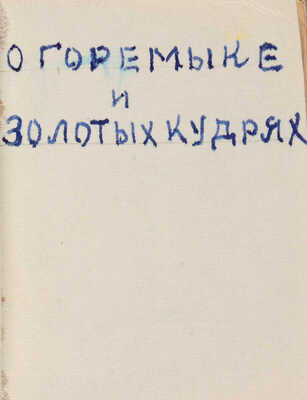 О ГОРЕМЫКЕ
И
ЗОЛОТЫХ КУДРЯХ